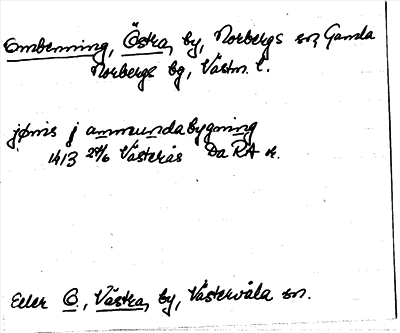 Ombenning, Östra, by, Norbergs sn, Gamla
Norbergs bg, Västm. l.
jønis j ammundabygning
1413 24/6 Västerås Da RA or.
Eller O., Västra, by, Västervåla sn.